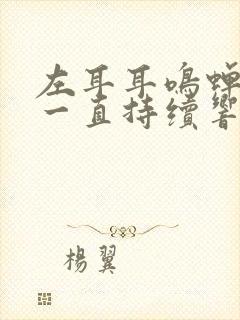 左耳耳鳴蟬
一直持續響
楊翼